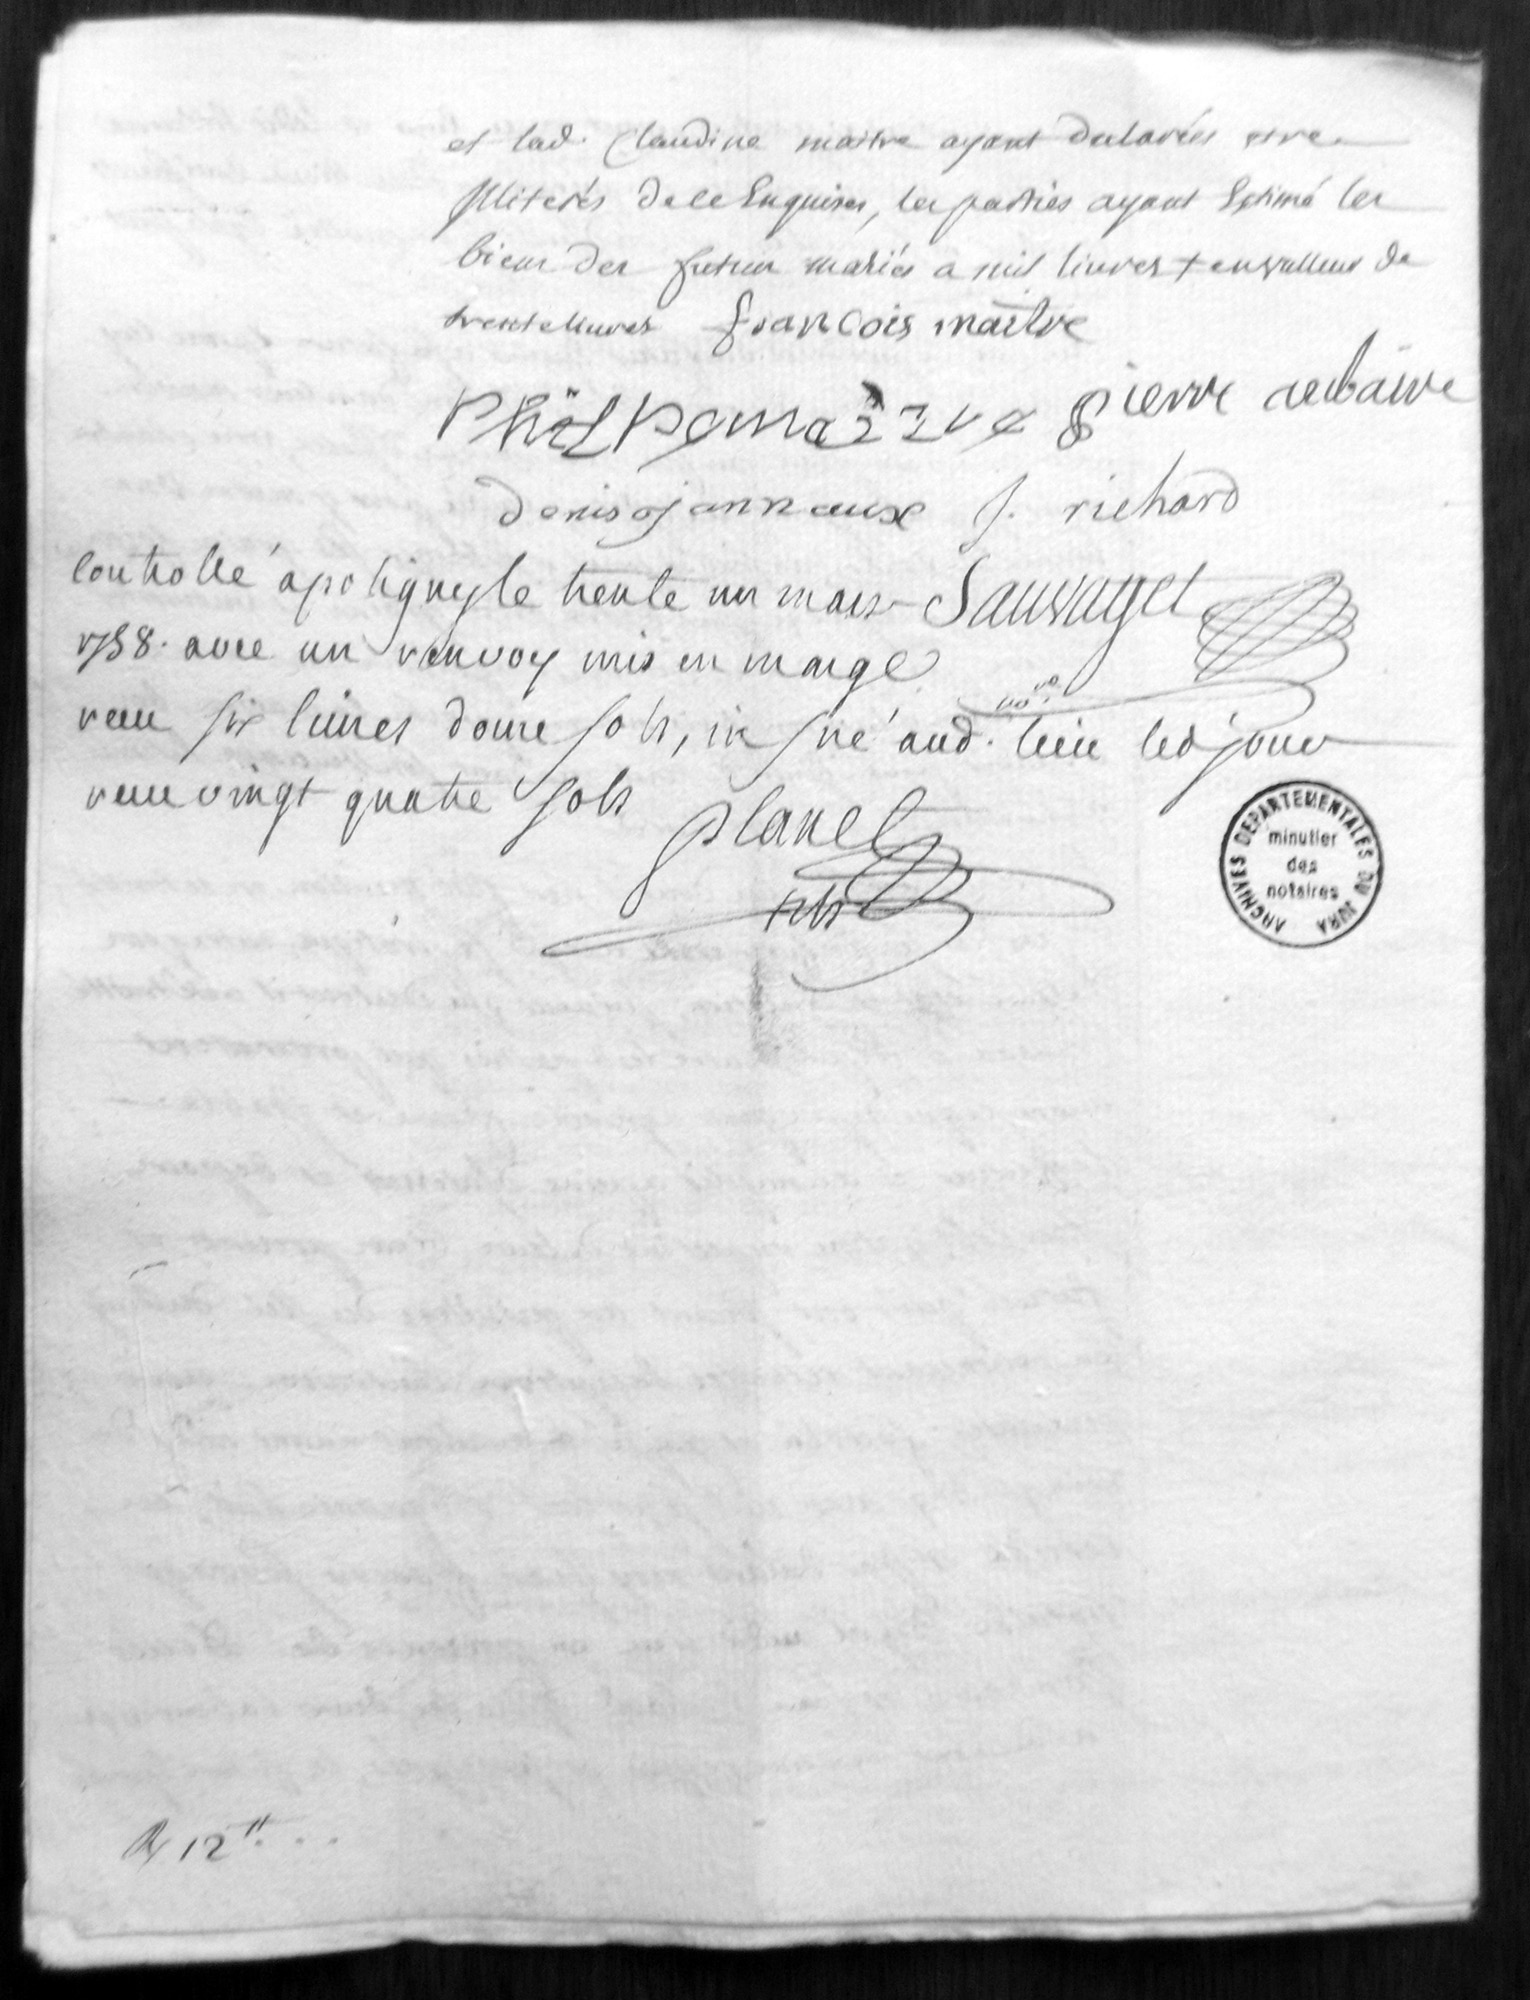 et lad. Claudine maitre ayant declarées etre
Illiterés de ce Enquises, les parties ayant Estimé les
biens des futur mariés a mil livres + en valleur de
trente livres françois maitre
Philpe maitre pierre
denis jannaux J. richard
Controllé a poligny le trente un mars Sauvaget
1758. avec un renvoy mis en marge
no.re
receu six livres douze sols, insiné aud. lieu led jour
receu vingt quatre sols planet
ARCHIVES DEPARTEMENTALES DU JURA
minutier
des
notaires
R 12 tt . . .